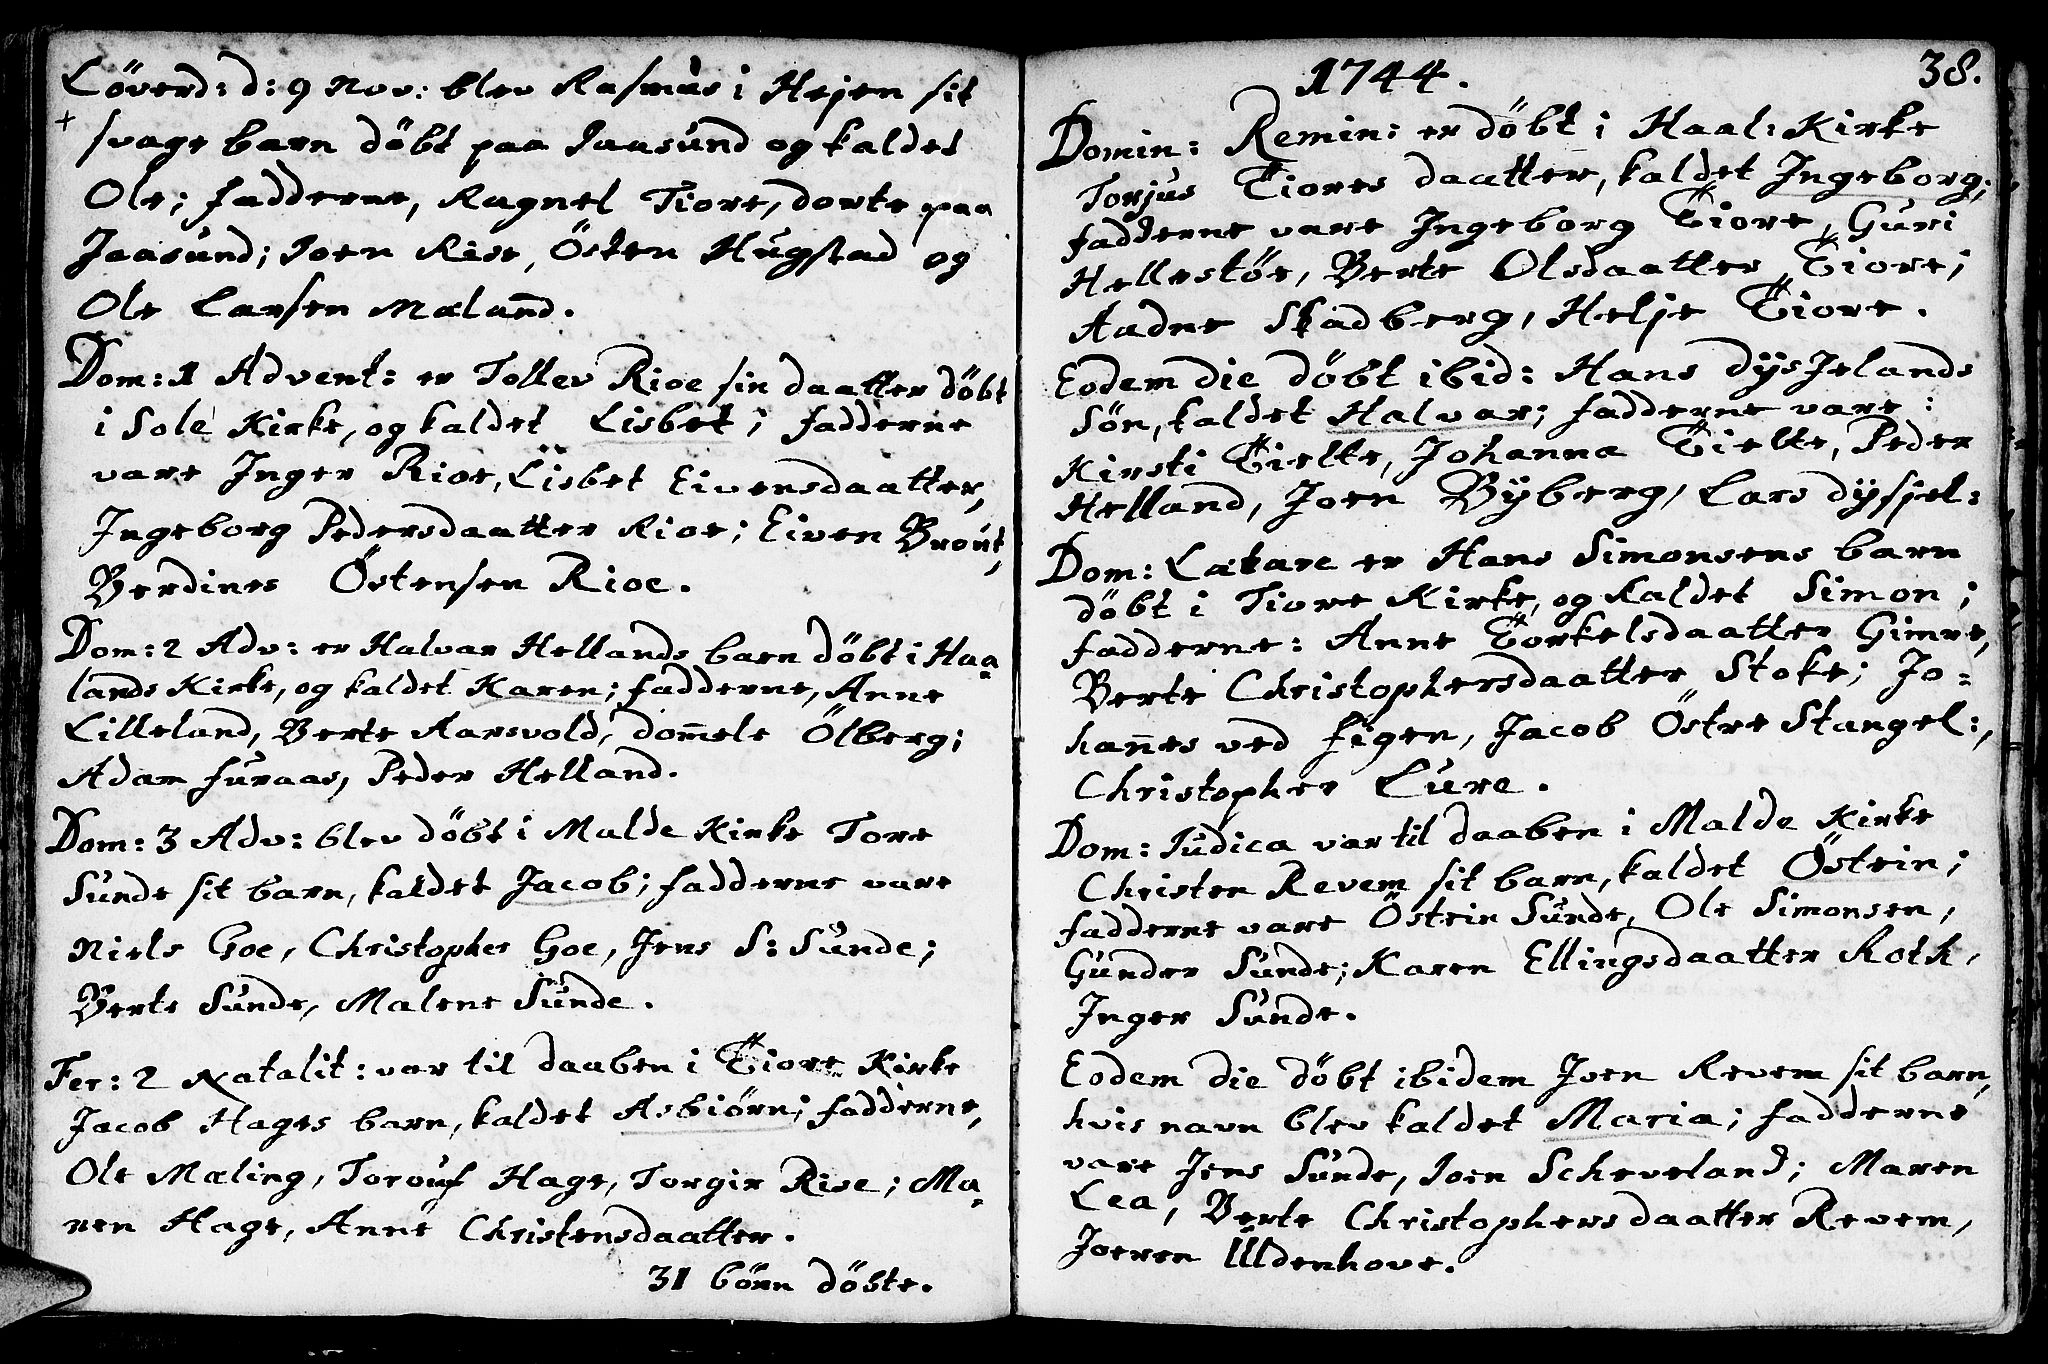 Löverd: d: 9 Nov: blev Rasmus i Hejen sit
+ svage barn döbt paa Jaasund og kaldet
Ole; fadderne, Ragnel Tiore, dorte paa
Jaasund; Joen Rise, Östen Hugstad og
Ole Larsen Mæland.
Dom: 1 Advent: er Tollev Rioe sin daatter döbt
i Sole Kirke, og kaldet Lisbet; fadderne
vare Inger Rioe, Lisbet Eivensdaatter,
Ingeborg Pedersdaatter Rioe; Eiven Brout,
Berdines Östensen Rioe.
Dom: 2 Adv: er Halvar Hellands barn döbt i Haa-
lands Kirke, og kaldet Karen; fadderne, Anne
Lilleland, Berte Aarsvold, dom̄ele Ölberg;
Adam furaas, Peder Helland.
Dom: 3 Adv: blev döbt i Malde Kirke Tore
Sunde sit barn, kaldet Jacob; fadderne vare
Niels Goe, Christopher Goe, Jens S: Sunde;
Berte Sunde, Malene Sunde.
Fer: 2 Natalit: var til daaben i Tiore Kirke
Jacob Hages barn, kaldet Asbiörn; fadderne,
Ole Mæling, Torouf Hage, Torgir Rise; Ma-
ren Hage, Anne Christensdaatter.
31 börn döbte.
1744. 38.
Domin: Remin: er döbt i Haal: Kirke
Torjus Tiores daatter, kaldet Ingeborg;
fadderne vare Ingeborg Tiore, Guri
Hellestöe, Berte Olsdaatter Tiore;
Aadne Skadberg, Helje Tiore.
Eodem die döbt ibid: Hans dysjelands
Sön, kaldet Halvar; fadderne vare:
Kirsti Tielte, Johanna Tielte, Peder
Helland, Joen Byberg, Lars dysjel:
Dom: Lætare er Hans Simonsens barn
döbt i Tiore Kirke, og kaldet Simon;
fadderne: Anne Torkelsdaatter Gimre,
Berte Christophersdaatter Stoke; Jo-
han̄es ved figen, Jacob Östre Stangel:,
Christopher Lure.
Dom: Judica var til daaben i Malde Kirke
Christen Revem sit barn, kaldet Östein;
fadderne vare Östein Sunde, Ole Simonsen,
Gunder Sunde; Karen Ellingsdaatter Roth,
Inger Sunde.
Eodem die döbt ibidem Joen Revem sit barn,
hvis navn blev kaldet Maria; fadderne
vare Jens Sunde, Joen Scheveland; Maren
Lea, Berte Christophersdaatter Revem,
Joeren Uldenhove.